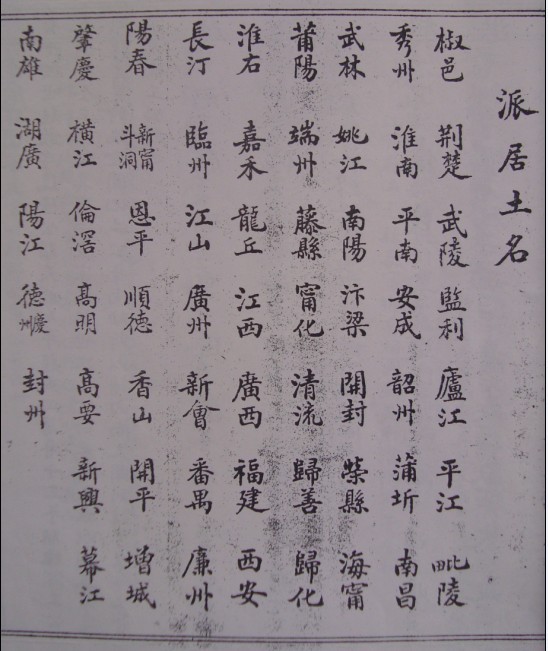 派居土名
椒邑 荆楚 武陵 監利 廬江 平江 毗陵
秀州 淮南 平南 安成 韶州 蒲圻 南昌
武林 姚江 南陽 汴梁 開封 榮縣 海甯
莆陽 端州 藤縣 甯化 清流 歸善 歸化
淮右 嘉禾 龍丘 江西 廣西 福建 西安
長汀 臨州 江山 廣州 新會 番禺 廉州
陽春 新甯斗洞 恩平 順德 香山 開平 增城
肇慶 橫江 倫滘 高明 高要 新興 幕江
南雄 湖廣 陽江 德慶州 封州